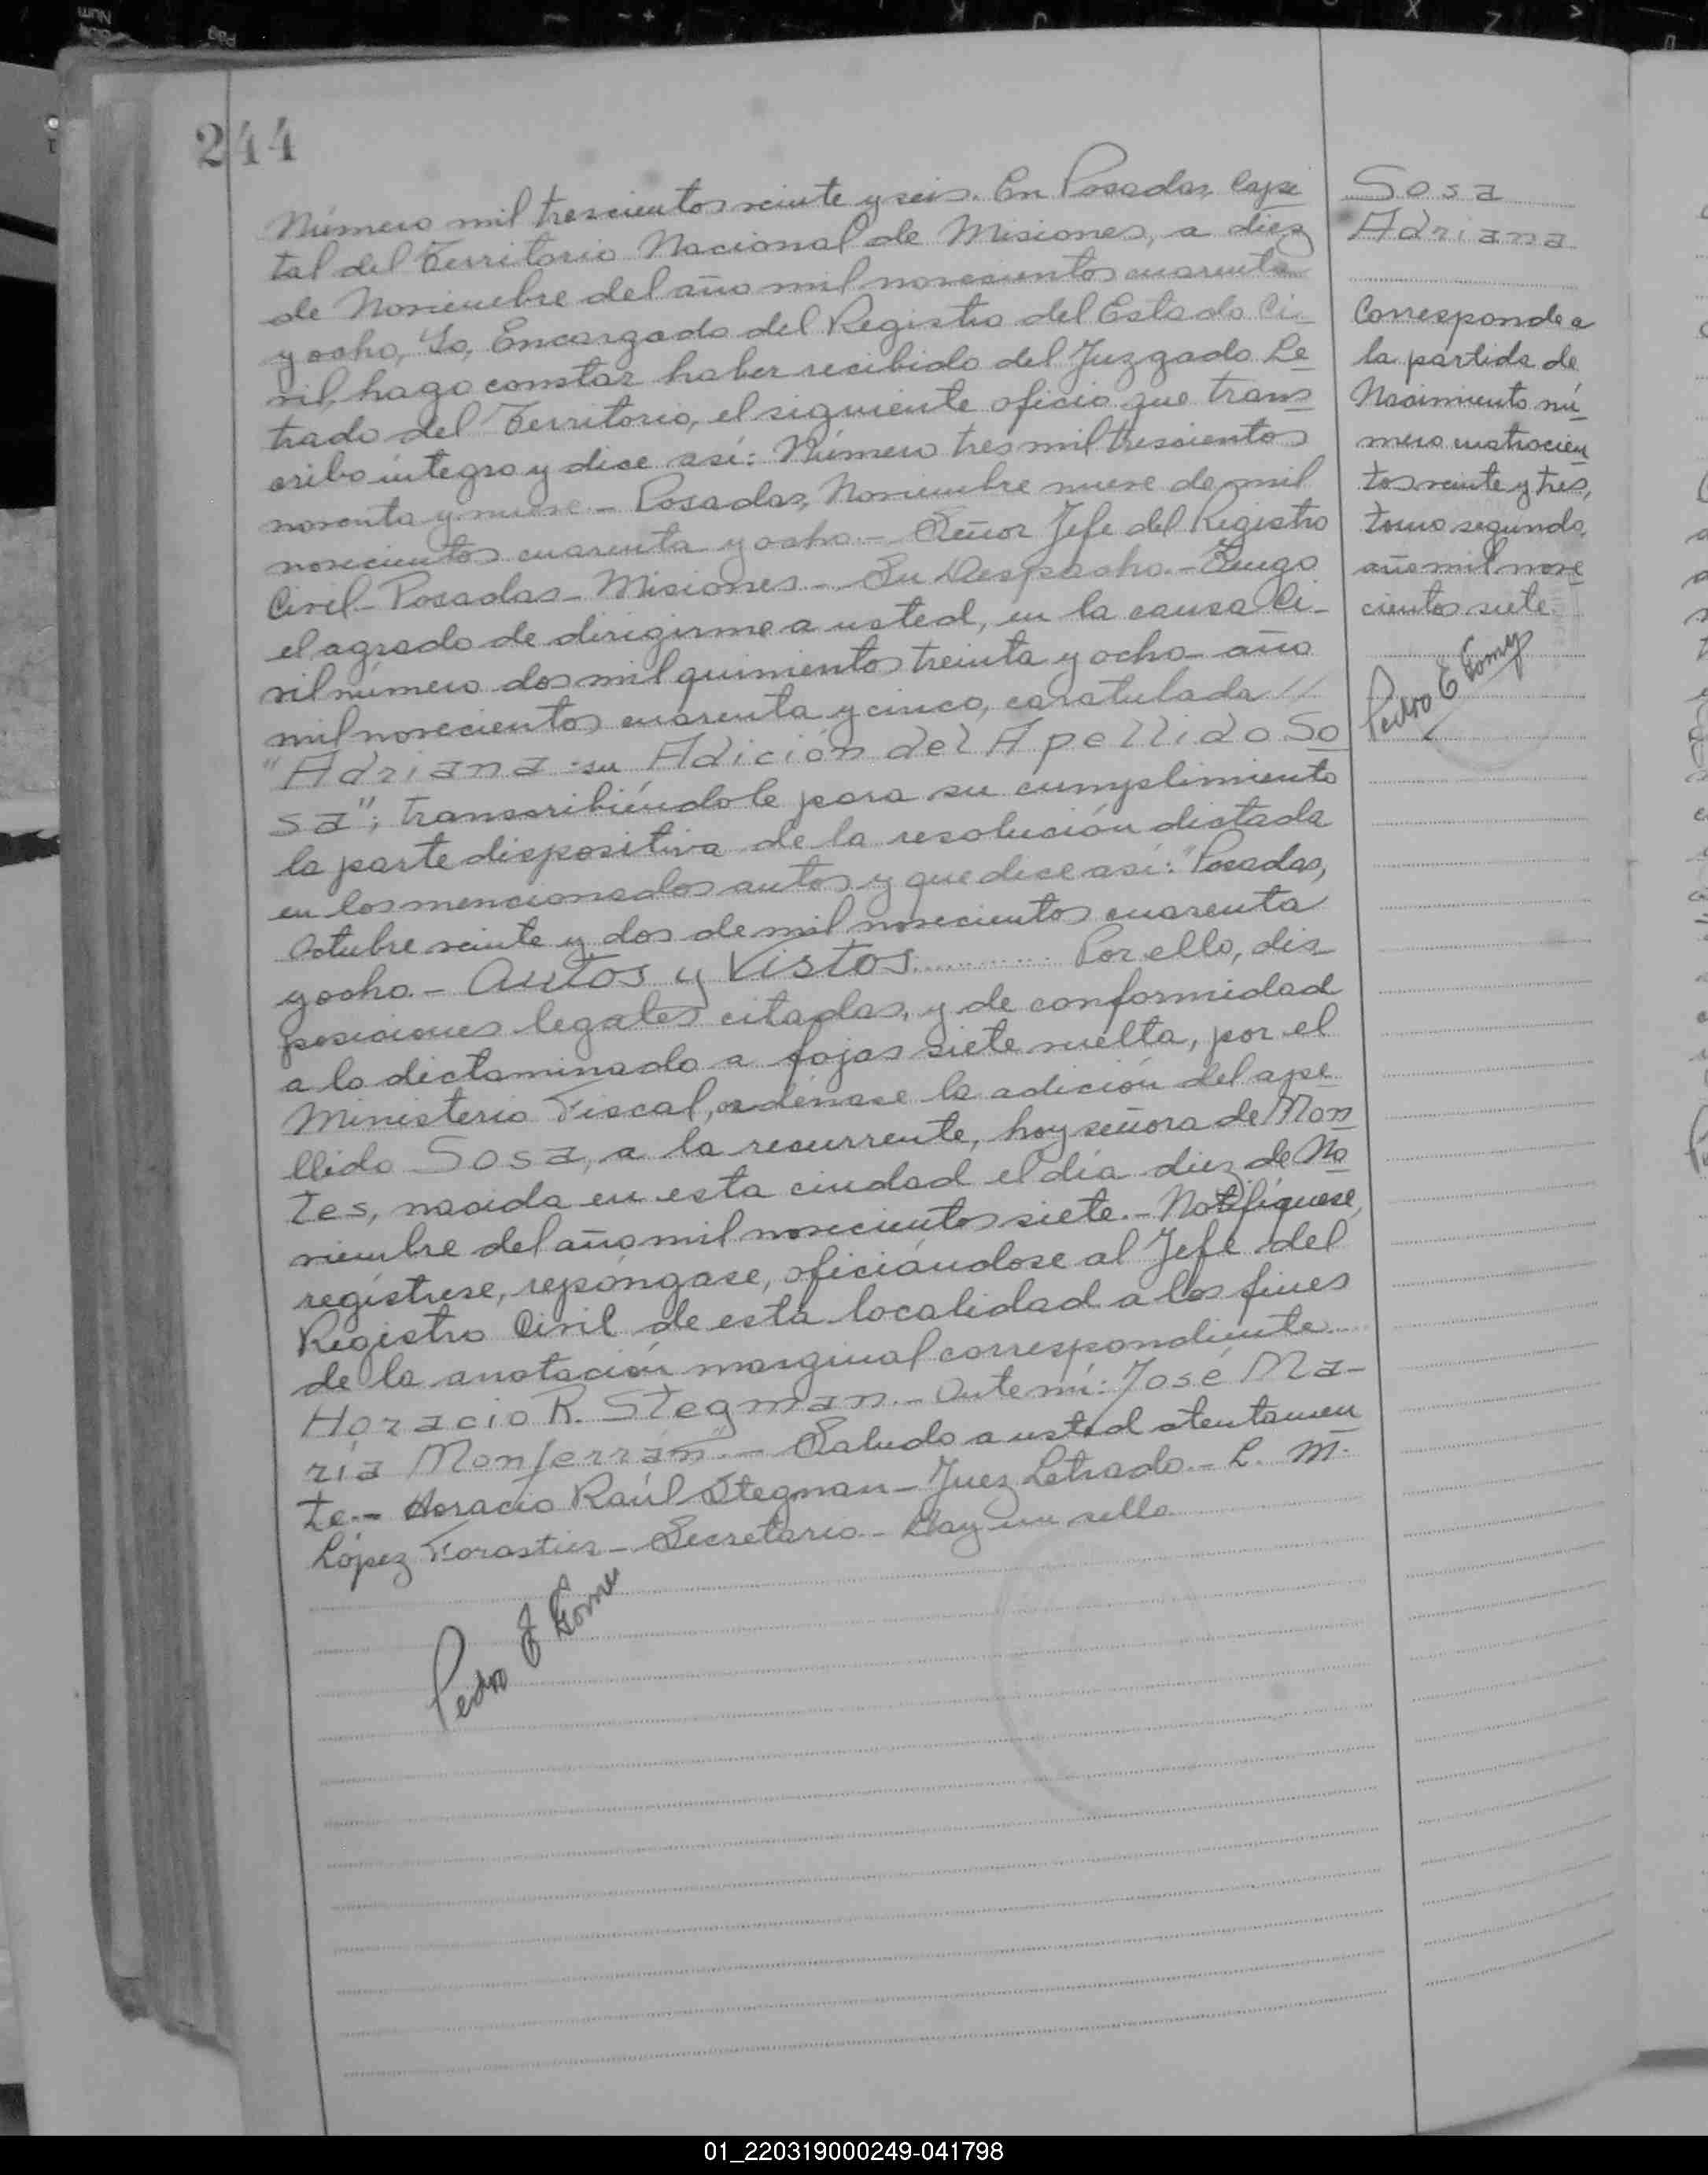 244
Número mil trescientos veinte y seis. En Posadas, Capi
tal del Territorio Nacional de Misiones, a diez
de Noviembre del año mil novecientos cuarenta
y ocho, Yo, Encargado del Registro del Estado Ci-
vil, hago constar haber recibido del Juzgado Le
trado del Territorio, el siguiente oficio que trans
cribo integro y dice así: Número tres mil trescientos
noventa y nueve - Posadas, Noviembre nueve de mil
novecientos cuarenta y ocho. - Señor Jefe del Registro
Civil - Posadas - Misiones - Su Despacho. - Tengo
el agrado de dirigirme a usted, en la causa Ci-
vil número dos mil quinientos treinta y ocho - año
mil novecientos cuarenta y cinco, caratulada //
"Adriana su Adición del Apellido So
sa"; transcribiéndole para su cumplimiento
la parte dispositiva de la resolución dictada
en los mencionados autos y que dice así: "Posadas,
Octubre veinte y dos de mil novecientos cuarenta
y ocho. - Autos y Vistos............ Por ello, dis
posiciones legales citadas, y de conformidad
a lo dictaminado a fojas siete vuelta, por el
Ministerio Fiscal, ordénase la adición del ape
llido Sosa, a la recurrente, hoy señora de Mon
tes, nacida en esta ciudad el día diez de No
viembre del año mil novecientos siete. - Notifíquese,
regístrese, repóngase, oficiándose al Jefe del
Registro Civil de esta localidad a los fines
de la anotación marginal correspondiente
Horacio R. Stegman. - Ante mí: José Ma-
ría Monferrán". - Saludo a usted atentamen
te. - Horacio Raúl Stegman - Juez Letrado. - L. M.
López Forastier - Secretario - Hay un sello
Pedro E Gomez
Sosa
Adriana
Corresponde a
la partida de
Nacimiento nú
mero cuatrocien
tos veinte y tres,
tomo segundo,
año mil nove
cientos siete.
Pedro E Gomez
01_220319000249-041798